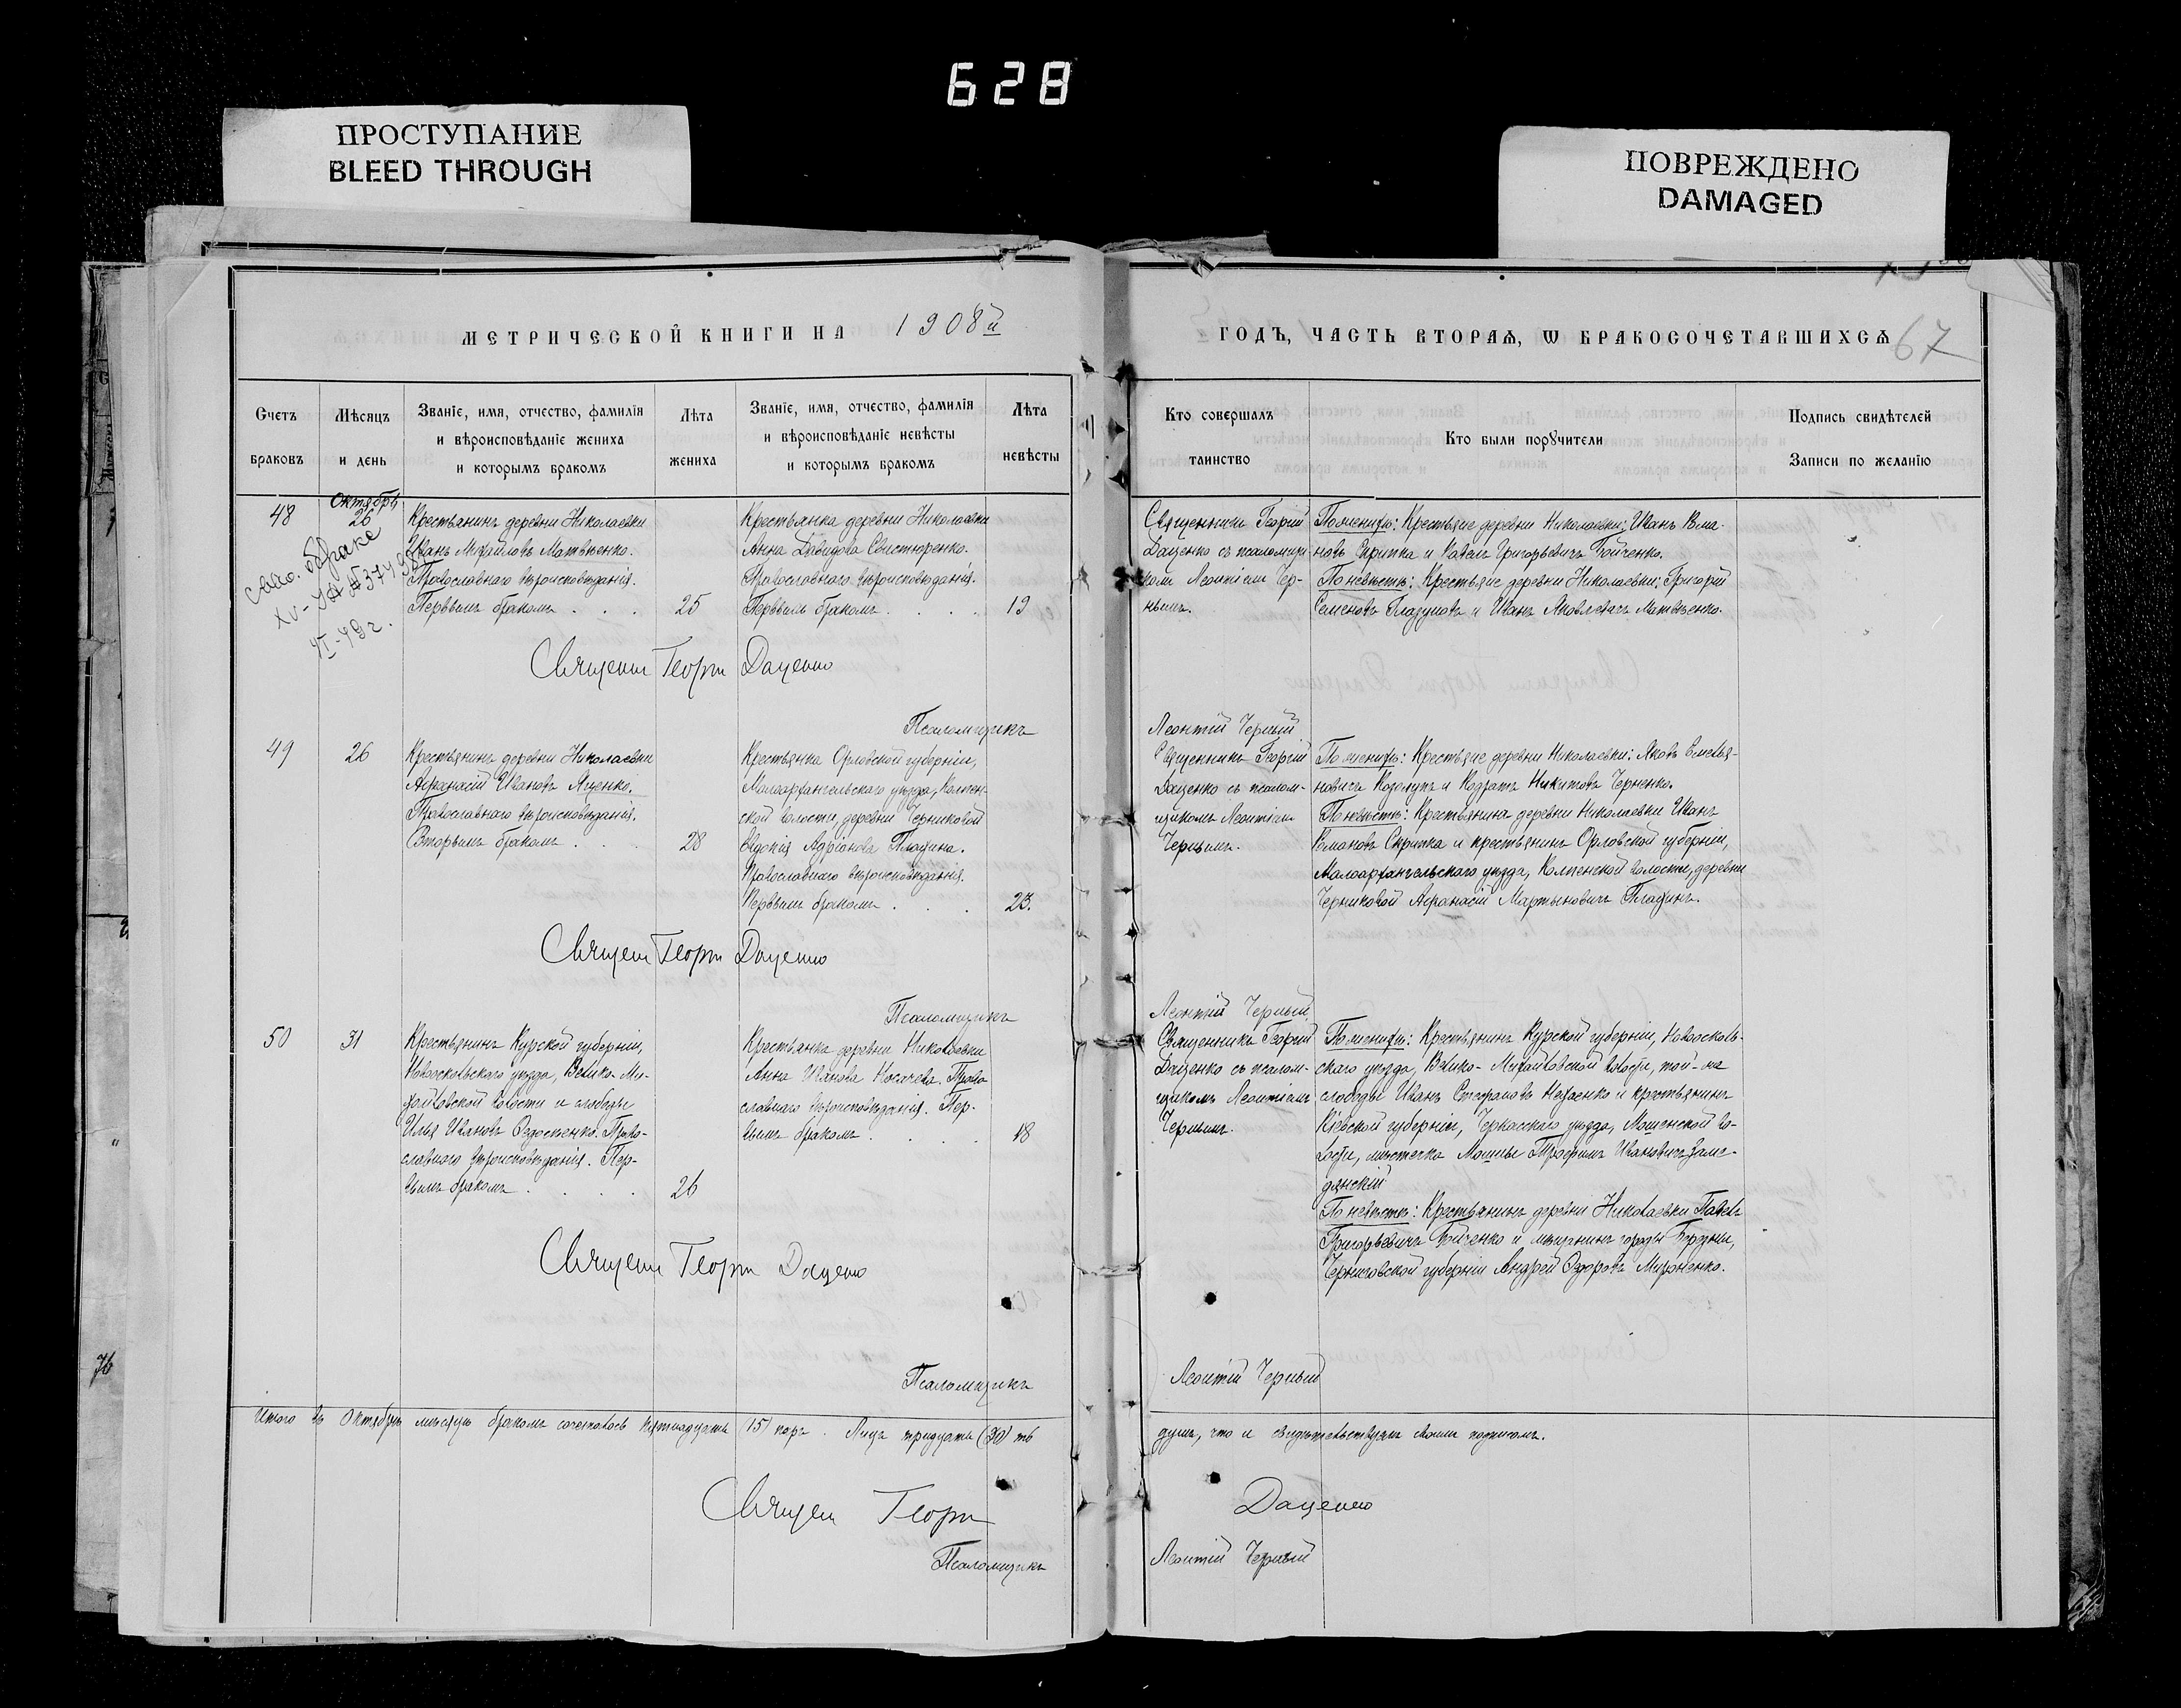 628
ПРОСТУПАНИЕ
BLEED THROUGH
ПОВРЕЖДЕНО
DAMAGED
МЕТРИЧЕСКОЙ КНИГИ НА 1908й
ГОДЪ, ЧАСТЬ ВТОРАѦ, Ѡ БРАКОСОЧЕТАВШИХСѦ
67
Счетъ
браковъ
Мѣсяцъ
и день
Званіе, имя, отчество, фамилія
и вѣроисповѣданіе жениха
и которымъ бракомъ
Лѣта
жениха
Званіе, имя, отчество, фамилія
и вѣроисповѣданіе невѣсты
и которымъ бракомъ
Лѣта
невѣсты
Кто совершалъ
таинство
Кто были порꙋчители
Подпись свидѣтелей
Записи по желанію
48
Октябрь
26
Крестьянинъ деревни Николаевки
Иванъ Михайловъ Матвѣенко.
Православнаго вѣроисповѣданія.
Первымъ бракомъ . . . 25
Крестьянка деревни Николаевки
Анна Давидова Свистюренко.
Православнаго вѣроисповѣданія.
Первымъ бракомъ . . . 19
Священникъ Георгій
Даценко съ псаломщи
комъ Леонтіемъ Чер-
нымъ.
По женихѣ: Крестьяне деревни Николаевки: Иванъ Рома-
новъ Скрипка и Павелъ Григорьевичъ Бойченко.
По невѣстѣ: Крестьяне деревни Николаевки: Григорій
Семеновъ Глазуновъ и Иванъ Яковлевичъ Матвѣенко.
Священ Георгій Даценко
Псаломщикъ
Леонтій Черный
49
26
Крестьянинъ деревни Николаевки
Афанасій Ивановъ Яценко.
Православнаго вѣроисповѣданія.
Вторымъ бракомъ . . . 28
Крестьянка Орловской губерніи,
Малоархангельского уѣзда, Колпен-
ской волости, деревни Черниковой
Евдокія Адріанова
Православнаго вѣроисповѣданія.
Первымъ бракомъ . . . 23.
Священникъ Георгій
Даценко съ псалом-
щикомъ Леонтіемъ
Чернымъ.
По женихѣ: Крестьяне деревни Николаевки: Яковъ Емелья-
новичъ Козолупъ и Кодратъ Никитовъ Черненко.
По невѣстѣ: Крестьянина деревни Николаевки Иванъ
Романовъ Скрипка и крестьянинъ Орловской губерніи,
Малоархангельского уѣзда, Колпенской волости, деревни
Черниковой Афанасій Мартыновичъ
Священ Георгій Даценко
Псаломщикъ
Леонтій Черный.
50
31
Крестьянинъ Курской губерніи,
Новооскольского уѣзда, Велико-Ми-
хайловской волости и слободы
Илья Ивановъ Православнаго вѣроисповѣданія. Пер-
вымъ бракомъ . . . . 26
Крестьянка деревни Николаевки
Анна Иванова Носачева. Право
славнаго вѣроисповѣданія. Пер-
вымъ бракомъ . . . . 18
Священникъ Георгій
Даценко съ псалом-
щикомъ Леонтіемъ
Чернымъ.
По женихѣ: Крестьянинъ Курской губерніи, Новоосколь-
скаго уѣзда, Велико-Михайловской волости, той-же
слободы Иванъ Стефановъ и крестьянинъ
Кіевской губерніи, Черкасскаго уѣзда, Мошенской во-
лости, мѣстечка Мошны Трофимъ Ивановичъ
По невѣстѣ: Крестьянинъ деревни Николаевки Павелъ
Григорьевичъ Бойченко и мѣщанинъ города Борзны,
Черниговской губерніи Андрей Ѳедоровъ Мироненко.
Священ Георгій Даценко
Псаломщикъ
Леонтій Черный
Итого въ Октябрѣ мѣсяцѣ бракомъ сочеталось пятнадцать (15) паръ. Лицъ тридцать (30) тѣ
душъ, что и свидѣтельствуемъ своимъ подписомъ.
Священ Георгій Даценко
Псаломщикъ Леонтій Черный
76